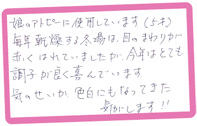 娘のアトピーに使用しています(5才)
毎年乾燥する冬場は、目のまわりが
赤くはれていましたが、今年はとても
調子が良く喜んでいます
気のせいか色白にもなってきた
気がします!!